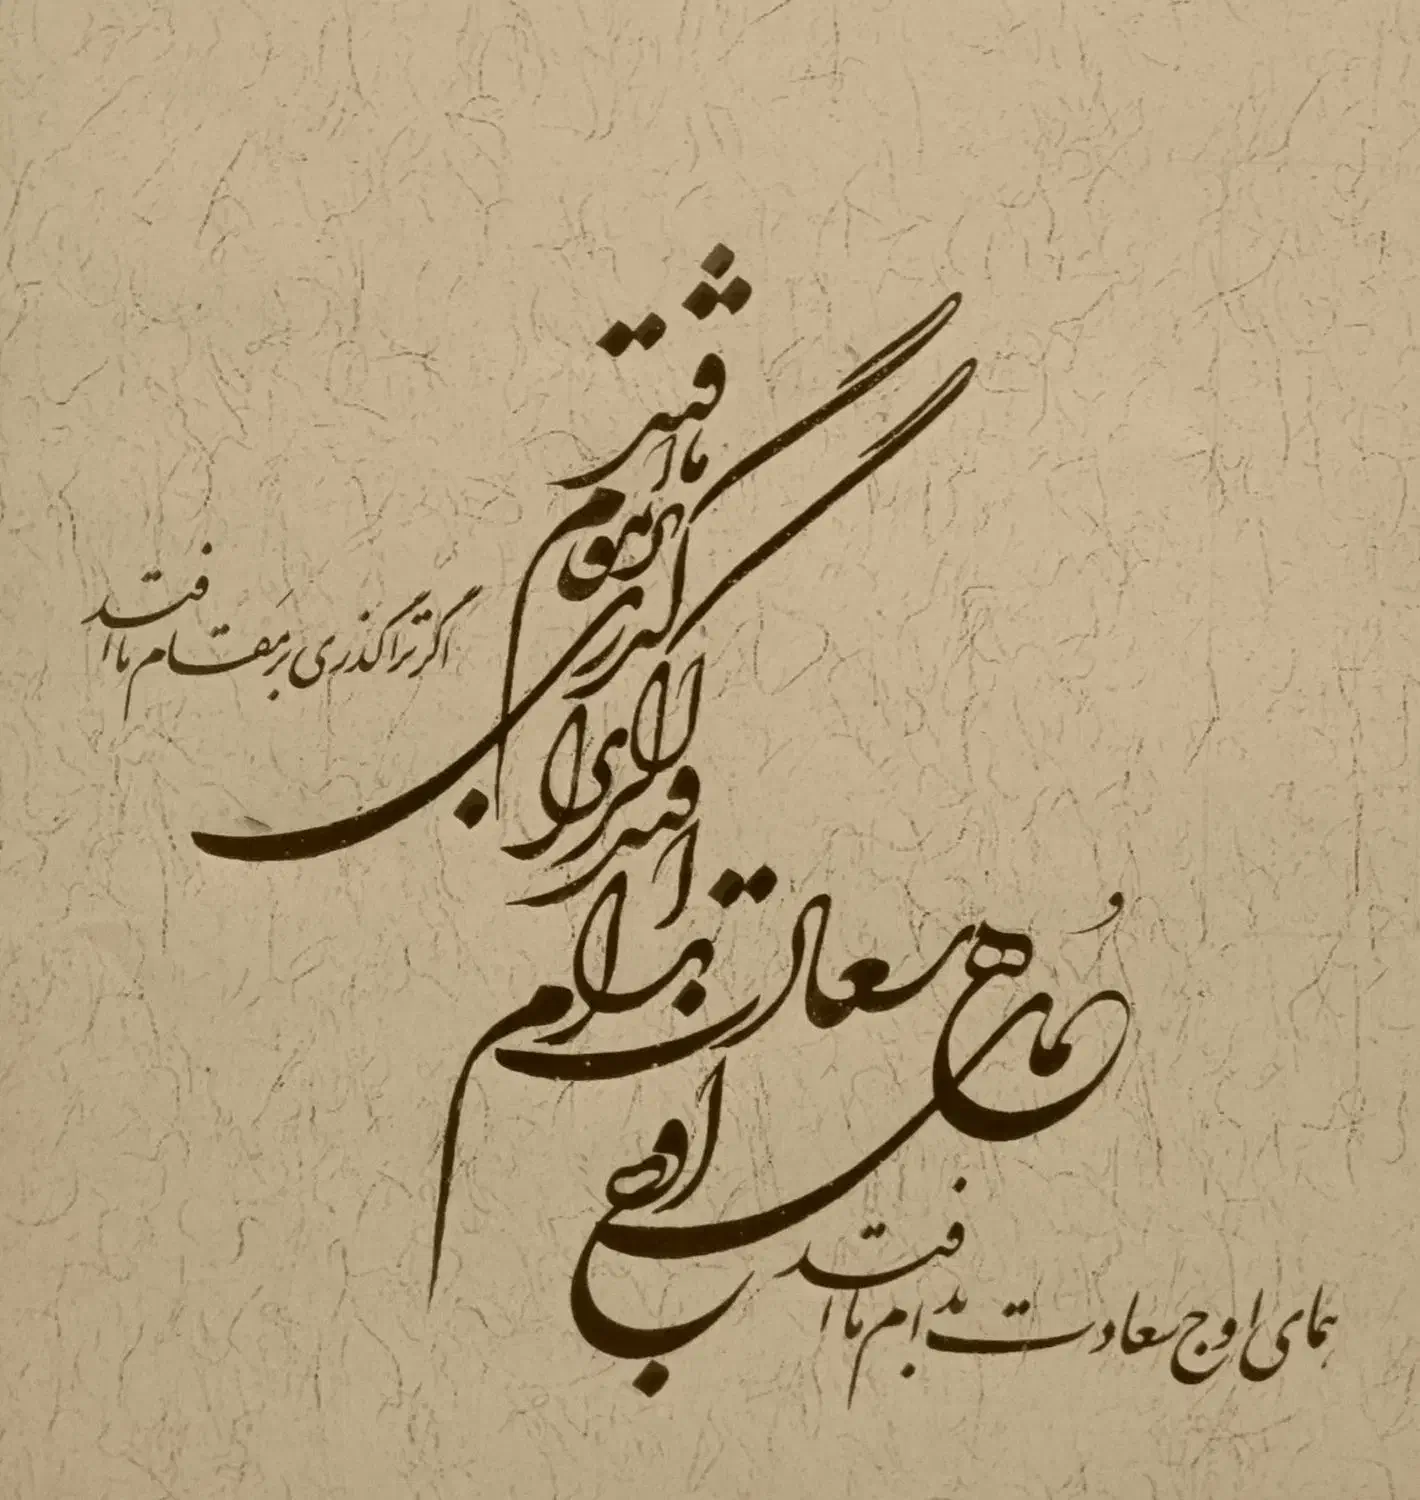 همای اوج سعادت بدام ما افتد
اگر ترا گذری بر مقام ما افتد
همای اوج سعادت بدام ما افتد
اگر ترا گذری بر مقام ما افتد